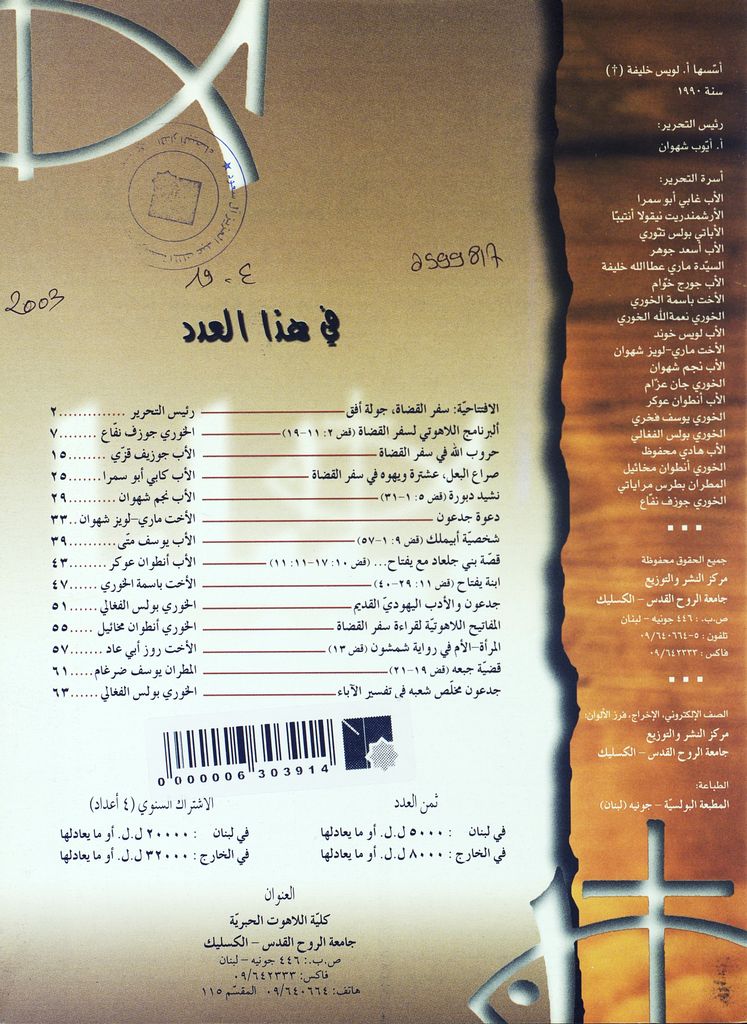 أسّسها أ. لويس خليفة (†)
سنة ١٩٩٠
رئيس التحرير:
أ. أيّوب شهوان
أسرة التحرير:
الأب غابي أبو سمرا
الأرشمندريت نيقولا أنتيبّا
الأباتي بولس تنّوري
الأب أسعد جوهر
السيّدة ماري عطاالله خليفة
الأب جورج خوّام
الأخت باسمة الخوري
الخوري نعمةالله الخوري
الأب لويس خوند
الأخت ماري-لويز شهوان
الأب نجم شهوان
الخوري جان عزّام
الأب أنطوان عوكر
الخوري يوسف فخري
الخوري بولس الفغالي
الأب هادي محفوظ
الخوري أنطوان مخائيل
المطران بطرس مراياتي
الخوري جوزف نفّاع
جميع الحقوق محفوظة
مركز النشر والتوزيع
جامعة الروح القدس - الكسليك
ص.ب.: ٤٤٦ جونيه - لبنان
تلفون: ٥-٠٩/٦٤٠٦٦٤
فاكس: ٠٩/٦٤٢٣٣٣
الصف الإلكتروني، الإخراج، فرز الألوان:
مركز النشر والتوزيع
جامعة الروح القدس - الكسليك
الطباعة:
المطبعة البولسيّة - جونيه (لبنان)
2003
19.٤
2599817
في هذا العدد
الافتتاحيّة: سفر القضاة، جولة أفق رئيس التحرير ............٢
ألبرنامج اللاهوتي لسفر القضاة (قض ٢: ١١-١٩) الخوري جوزف نفّاع .......٧
حروب الله في سفر القضاة الأب جوزيف قزّي ......١٥
صراع البعل، عشترة ويهوه في سفر القضاة الأب كابي أبو سمرا .....٢٥
نشيد دبورة (قض ٥: ١-٣١) الأب نجم شهوان ........٢٩
دعوة جدعون الأخت ماري-لويز شهوان ..٣٣
شخصيّة أبيملك (قض ٩: ١-٥٧) الأب يوسف متّى .........٣٩
قصّة بني جلعاد مع يفتاح... (قض ١٠: ١٧-١١: ١١) الأب أنطوان عوكر ......٤٣
ابنة يفتاح (قض ١١: ٢٩-٤٠) الأخت باسمة الخوري .....٤٧
جدعون والأدب اليهوديّ القديم الخوري بولس الفغالي .....٥١
المفاتيح اللاهوتيّة لقراءة سفر القضاة الخوري أنطوان مخائيل .....٥٥
المرأة-الأم في رواية شمشون (قض ١٣) الأخت روز أبي عاد ......٥٧
قضيّة جبعه (قض ١٩-٢١) المطران يوسف ضرغام ....٦١
جدعون مخلّص شعبه في تفسير الآباء الخوري بولس الفغالي ......٦٣
0 000006 303914
ثمن العدد
في لبنان : ٥٠٠٠ ل.ل. أو ما يعادلها
في الخارج : ٨٠٠٠ ل.ل. أو ما يعادلها
الاشتراك السنوي (٤ أعداد)
في لبنان : ٢٠٠٠٠ ل.ل. أو ما يعادلها
في الخارج : ٣٢٠٠٠ ل.ل. أو ما يعادلها
العنوان
كليّة اللاهوت الحبريّة
جامعة الروح القدس - الكسليك
ص.ب.: ٤٤٦ جونيه - لبنان
فاكس: ٠٩/٦٤٢٣٣٣
هاتف: ٠٩/٦٤٠٦٦٤ المقسّم ١١٥